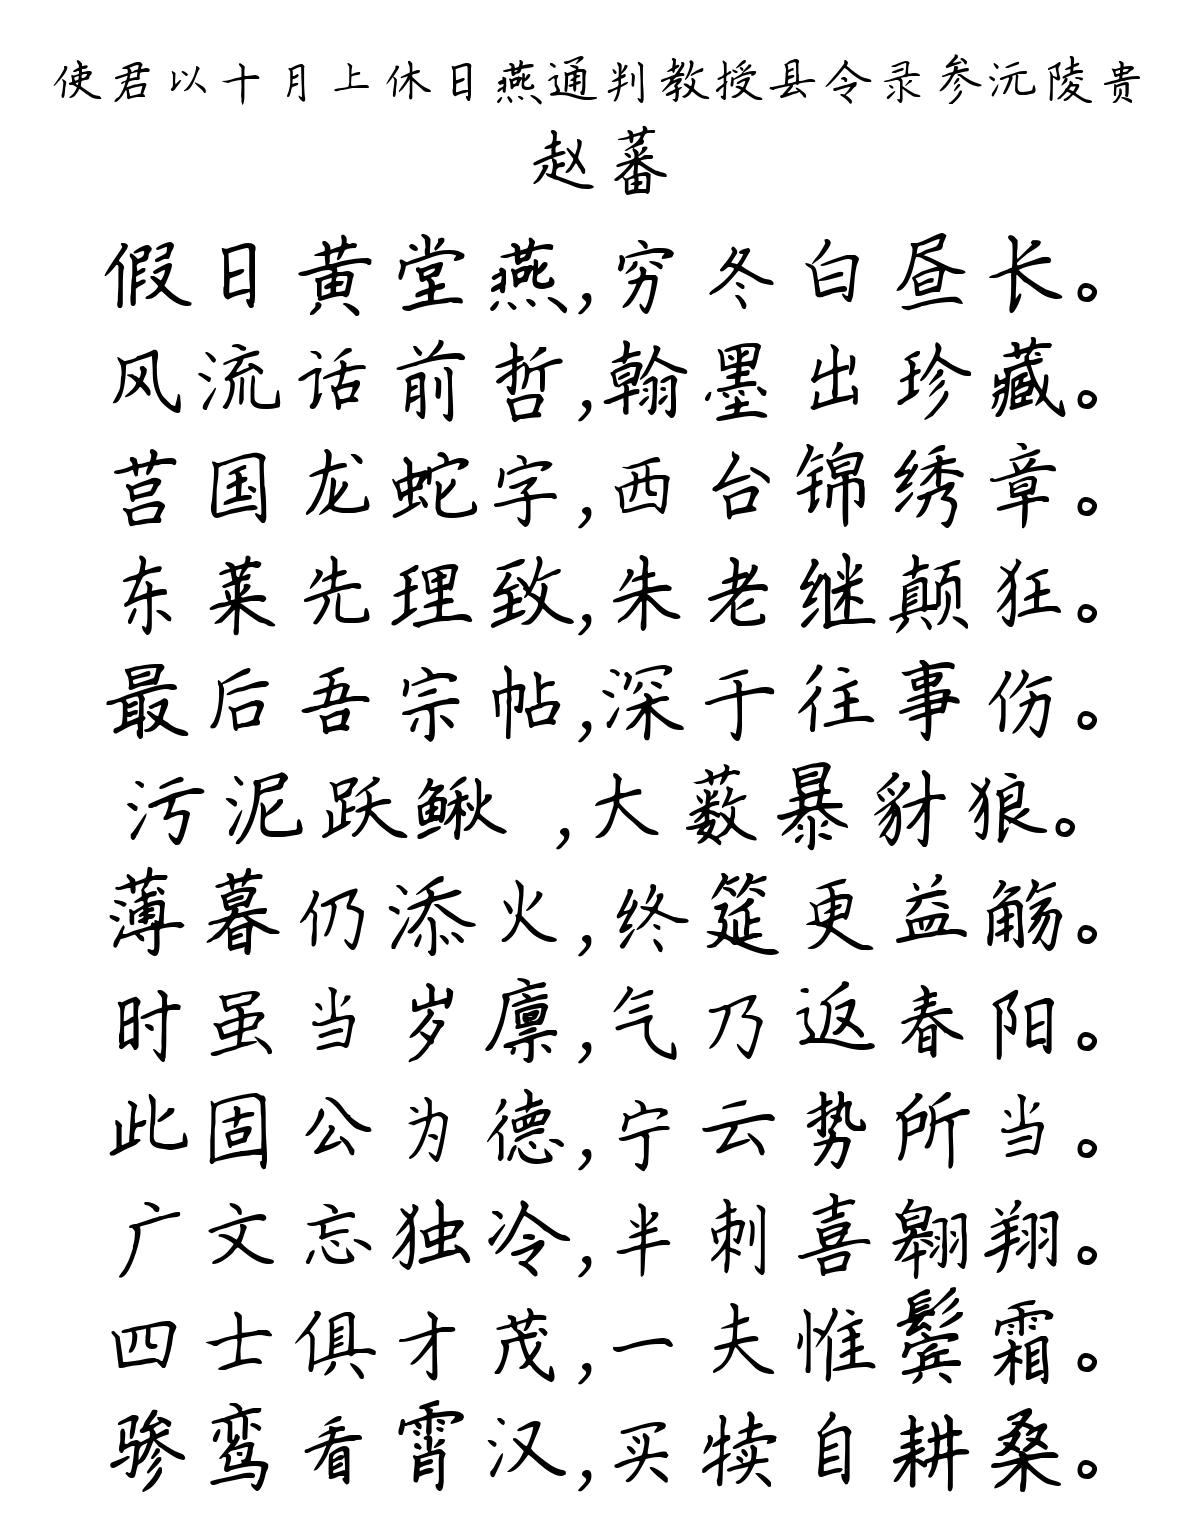 使君以十月上休日燕通判教授县令录参沅陵贵
赵蕃
假日黄堂燕,穷冬白昼长。
风流话前哲,翰墨出珍藏。
莒国龙蛇字,西台锦绣章。
东莱先理致,朱老继颠狂。
最后吾宗帖,深于往事伤。
污泥跃鳅 ,大薮暴豺狼。
薄暮仍添火,终筵更益觞。
时虽当岁廪,气乃返春阳。
此固公为德,宁云势所当。
广文忘独冷,半刺喜翱翔。
四士俱才茂,一夫惟鬓霜。
骖鸾看霄汉,买犊自耕桑。